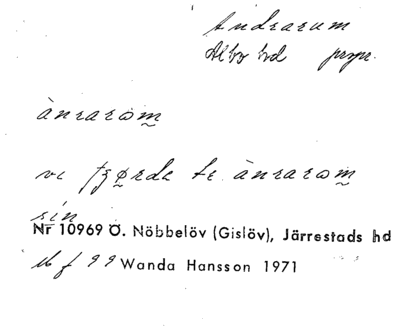 Andrarum
Albo hd prpr.
ànrarom̰
vi fzø̰rde te ànrarom̰
sin
Nr 10969 Ö. Nöbbelöv (Gislöv), Järrestads hd
Wanda Hansson 1971